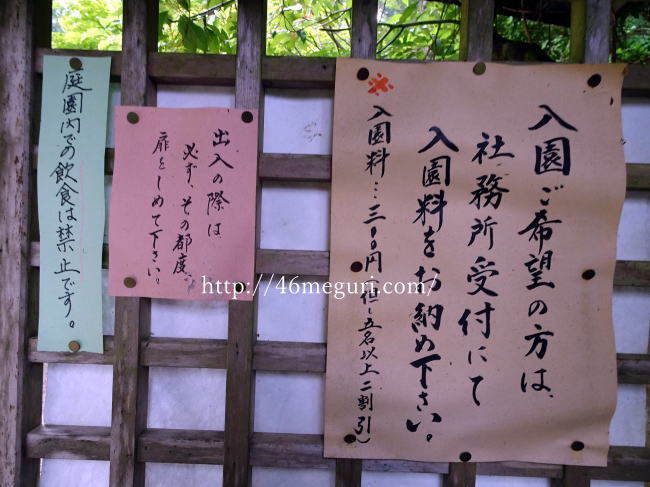 入園ご希望の方は、
社務所受付にて
入園料をお納め下さい。
※
入園料…三〇〇円(但し五名以上二割引)
出入の際は
必ず、その都度、
扉をしめて下さい。
庭園内での飲食は禁止です。
http://46meguri.com/